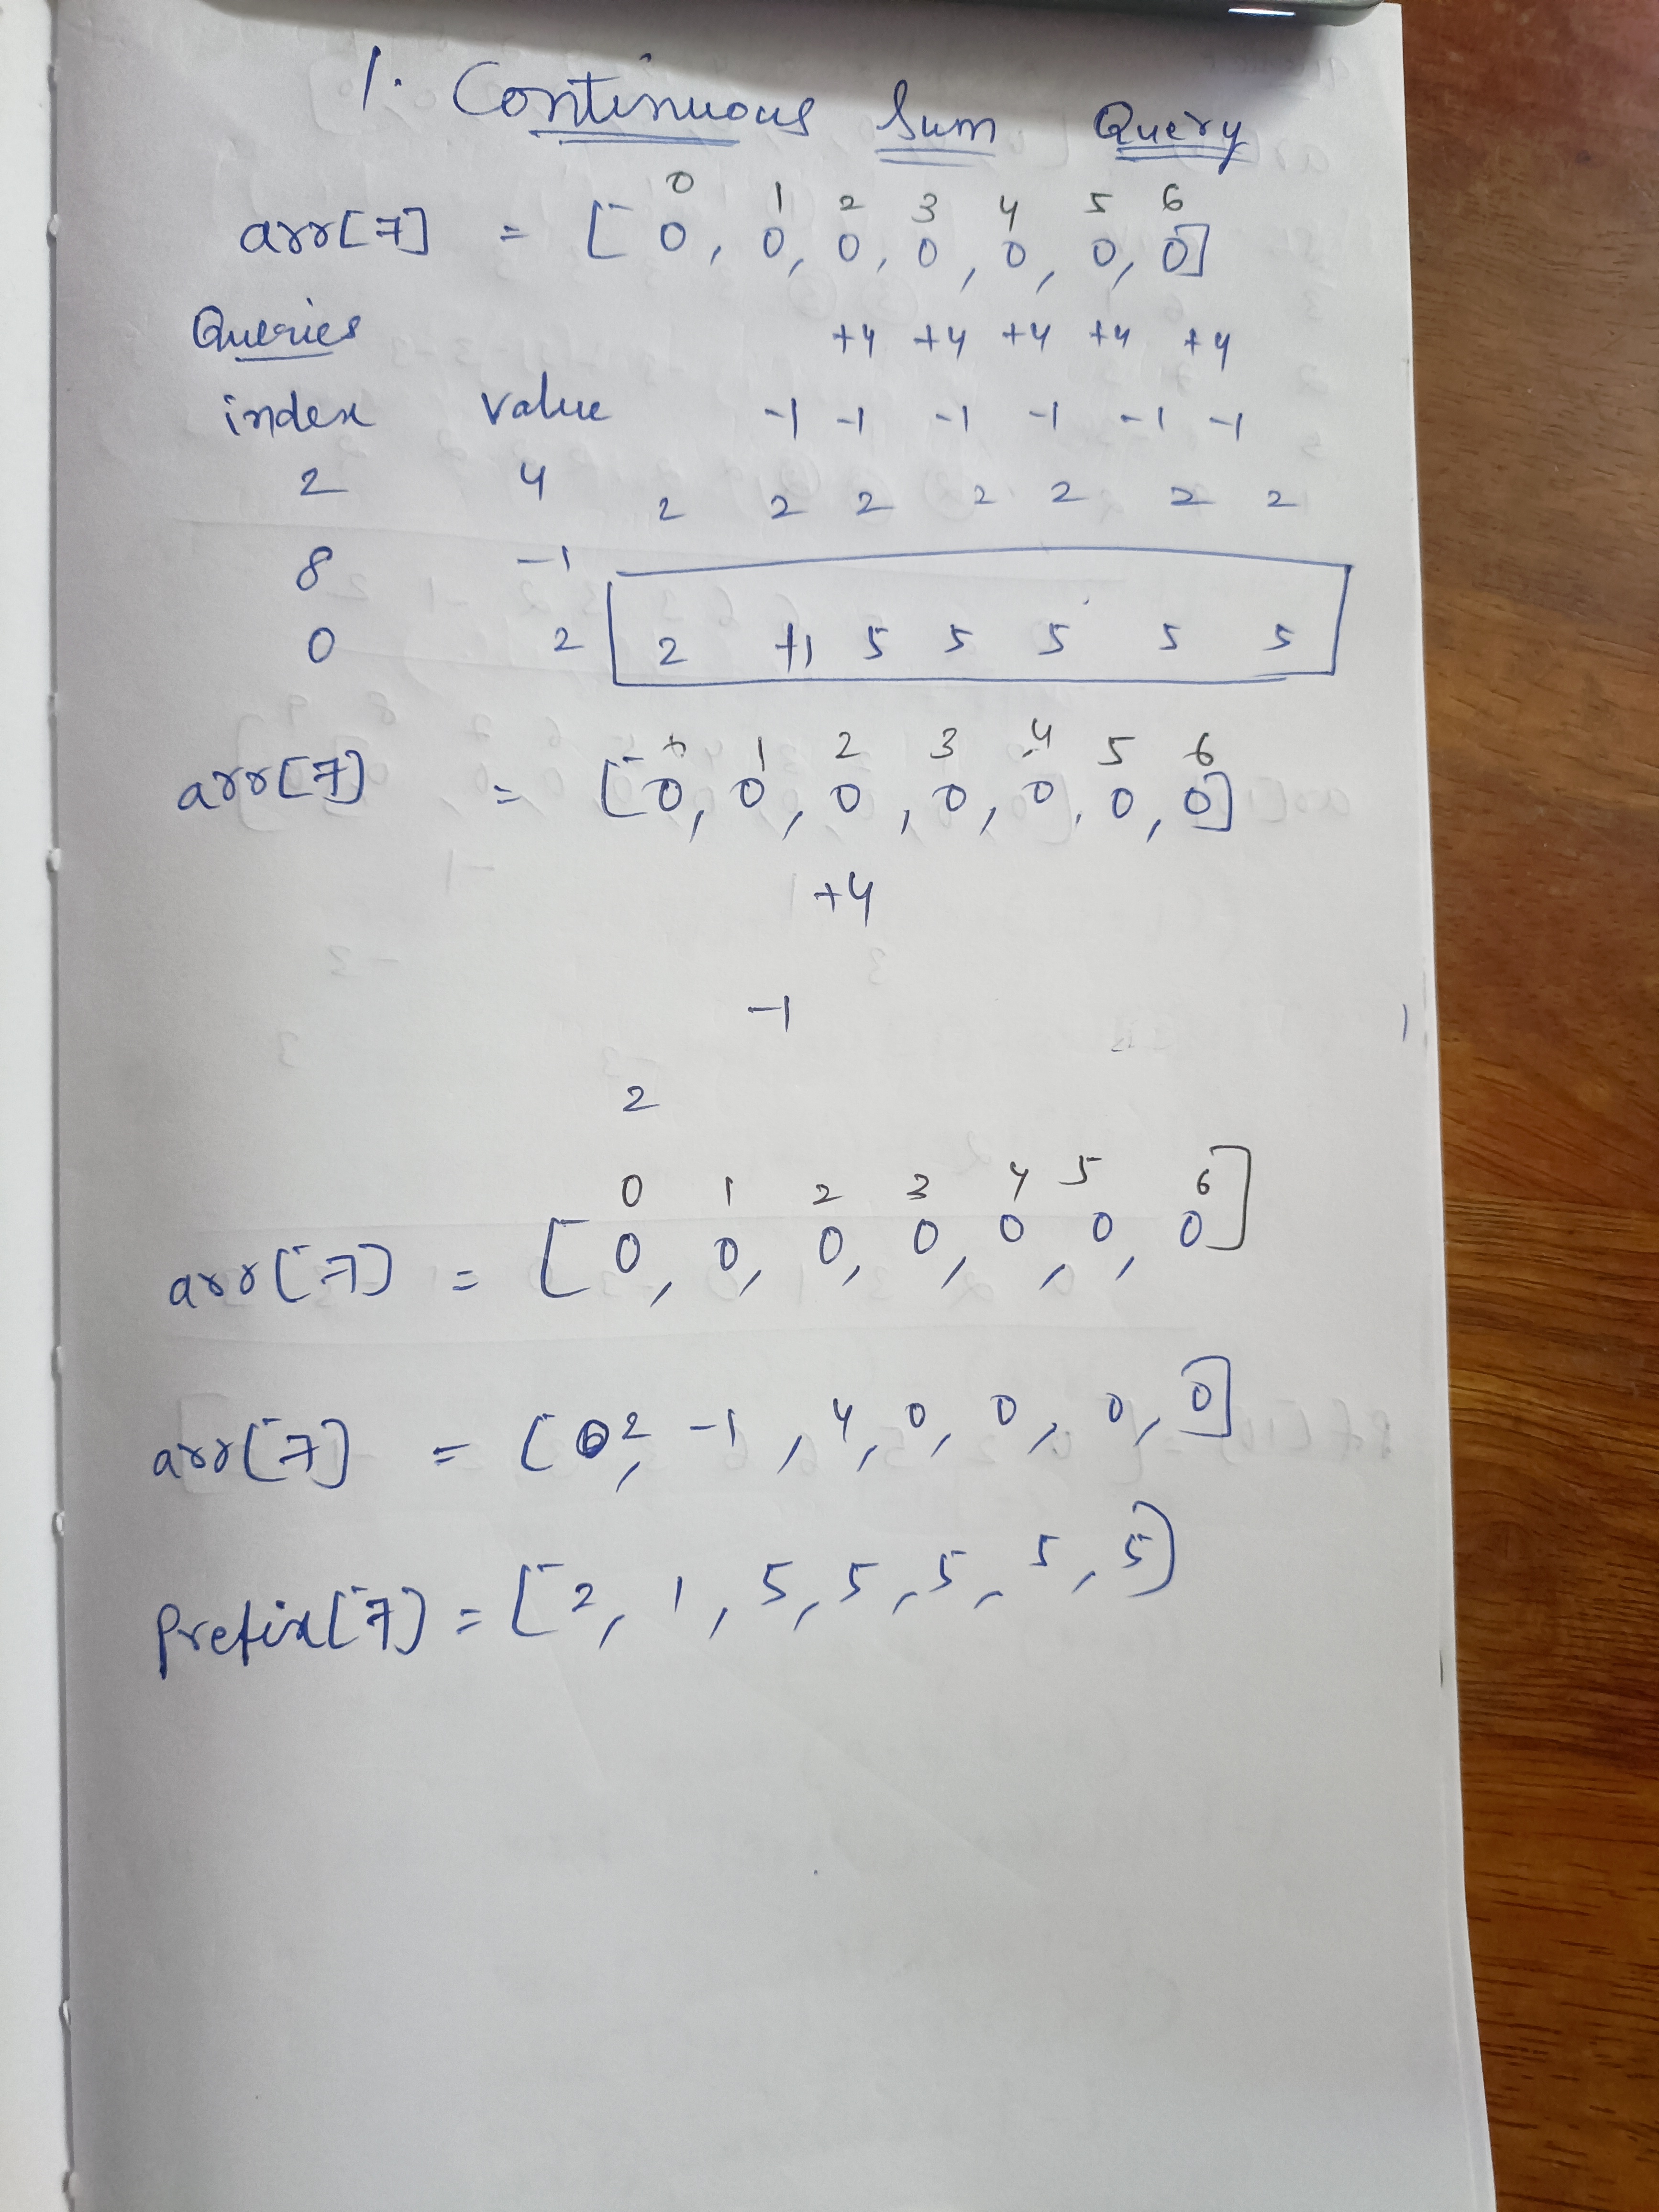 1. Continuous Sum Query
0 1 2 3 4 5 6
arr[7] = [0, 0, 0, 0, 0, 0, 0]
Queries +4 +4 +4 +4 +4
index value -1 -1 -1 -1 -1 -1
2 4 2 2 2 2 2 2 2
8 -1
0 2 2 +1 5 5 5 5 5
1 2 3 4 5 6
arr[7] = [0, 0, 0, 0, 0, 0, 0]
+4
-1
2
0 1 2 3 4 5 6
arr[7] = [0, 0, 0, 0, 0, 0, 0]
arr[7] = [2, -1, 4, 0, 0, 0, 0]
Prefix[7] = [2, 1, 5, 5, 5, 5, 5]